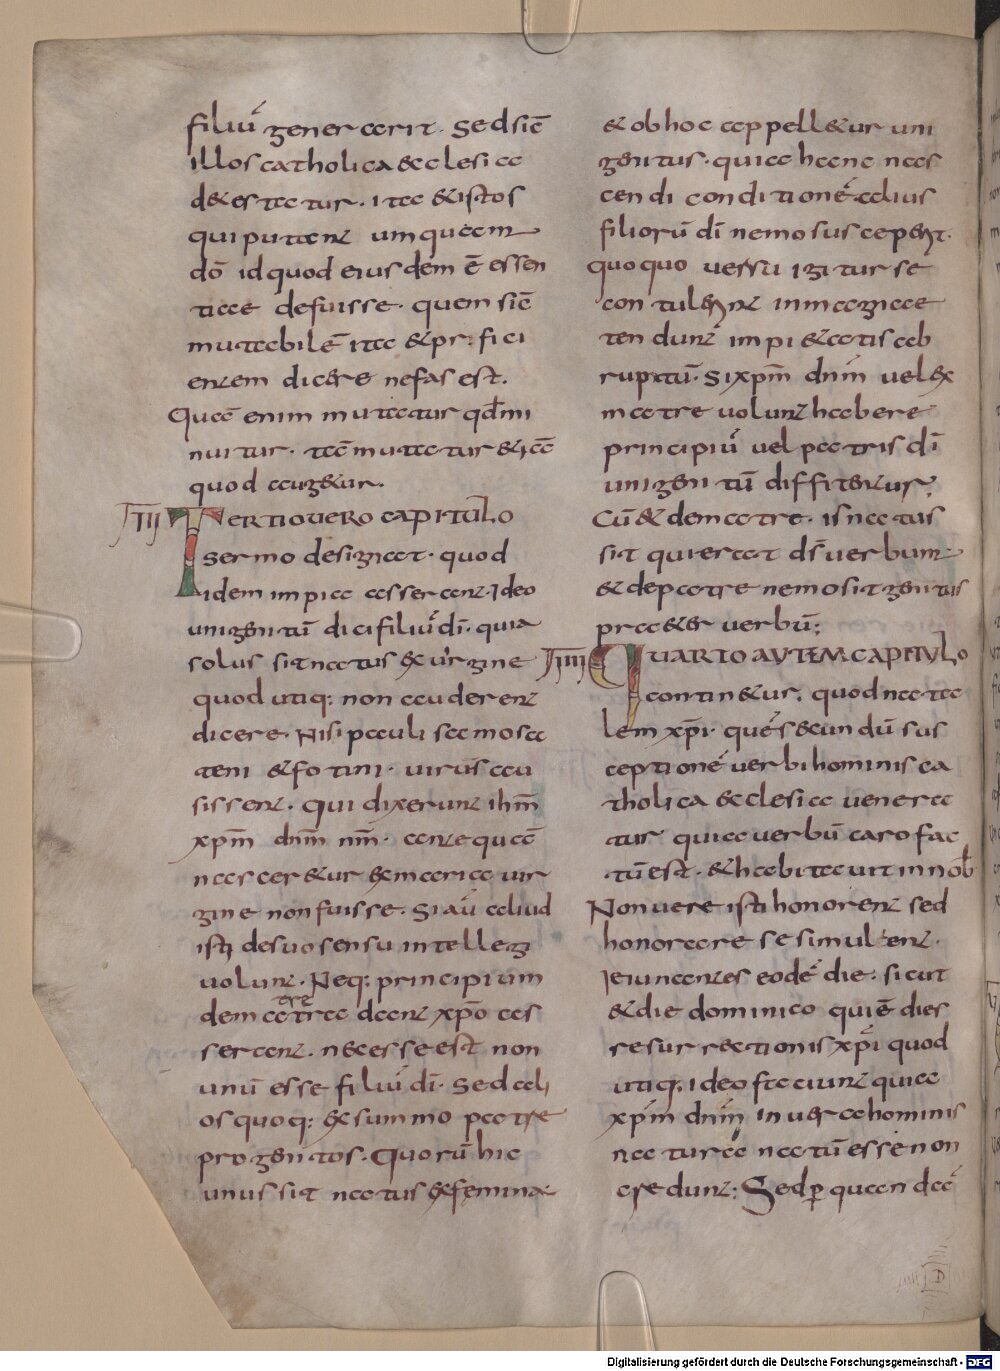 filiū generarit. Sed sic̄
illos catholica &cclesia
d&estatur. ita & istos
qui putant umquam
dō id quod eiusdem ē essen
tiae defuisse. quem sic̄
mutabilē ita & proficientem
entem dicere nefas est.
Quae enim mutatur qd̄ mi
nuitur. tam̄ mutatur & iā
quod aug&ur.
III TERTIO VERO CAPITULO
sermo designat. quod
idem impia asserant. Ideo
unigenitū dici filiū dī. quia
solus sit natus ex uirgine
quod utiq; non auderent
dicere. Nisi pauli samosa
teni & fotini. uirus hau
sissent. qui dixerunt ihm̄
xpm̄ dnm̄ nm̄. antequam̄
nascer&ur ex maria uir
gine non fuisse. Si aū aliud
isti de suo sensu intellegi
uolunt. Neq; principium
de matre dant xpo as
serant. necesse est non
unū esse filiū dī. Sed ali
os quoq; ex summo patre
progenitos. Quorū hic
unus sit natus ex femina
& ob hoc appell&ur uni
genitus. quia hanc nas
cendi conditionē alius
filiorū dī nemo suscepit.
quoquo uersu igitur se
contulerint in magicae
tendunt impi&atis ab
ruptū. Si xpm̄ dnm̄ uel ex
matre uolunt habere
principiū uel patris dī
unigenitū diffitentur.
Cū & de matre. is natus
sit qui erat ds̄ uerbum
& de patre nemo sit genitus
praeter uerbū;
IIII QUARTO AUTEM CAPITULO
contin&ur. quod nata
lem xpi. quē secundū sus
ceptionē uerbi hominis ca
tholica &cclesia uenera
tur quia uerbū caro fac
tū est. & habitauit in nob̄
Non uere isti honorent sed
honorare se simulent.
Ieiunantes eodē die. sicut
& die dominico qui ē dies
resurrectionis xpi quod
utiq; ideo faciunt quia
xpm̄ dnm̄ in uera hominis
natura natū esse non
credunt; Sed p̱ quandā
Digitalisierung gefördert durch die Deutsche Forschungsgemeinschaft - DFG